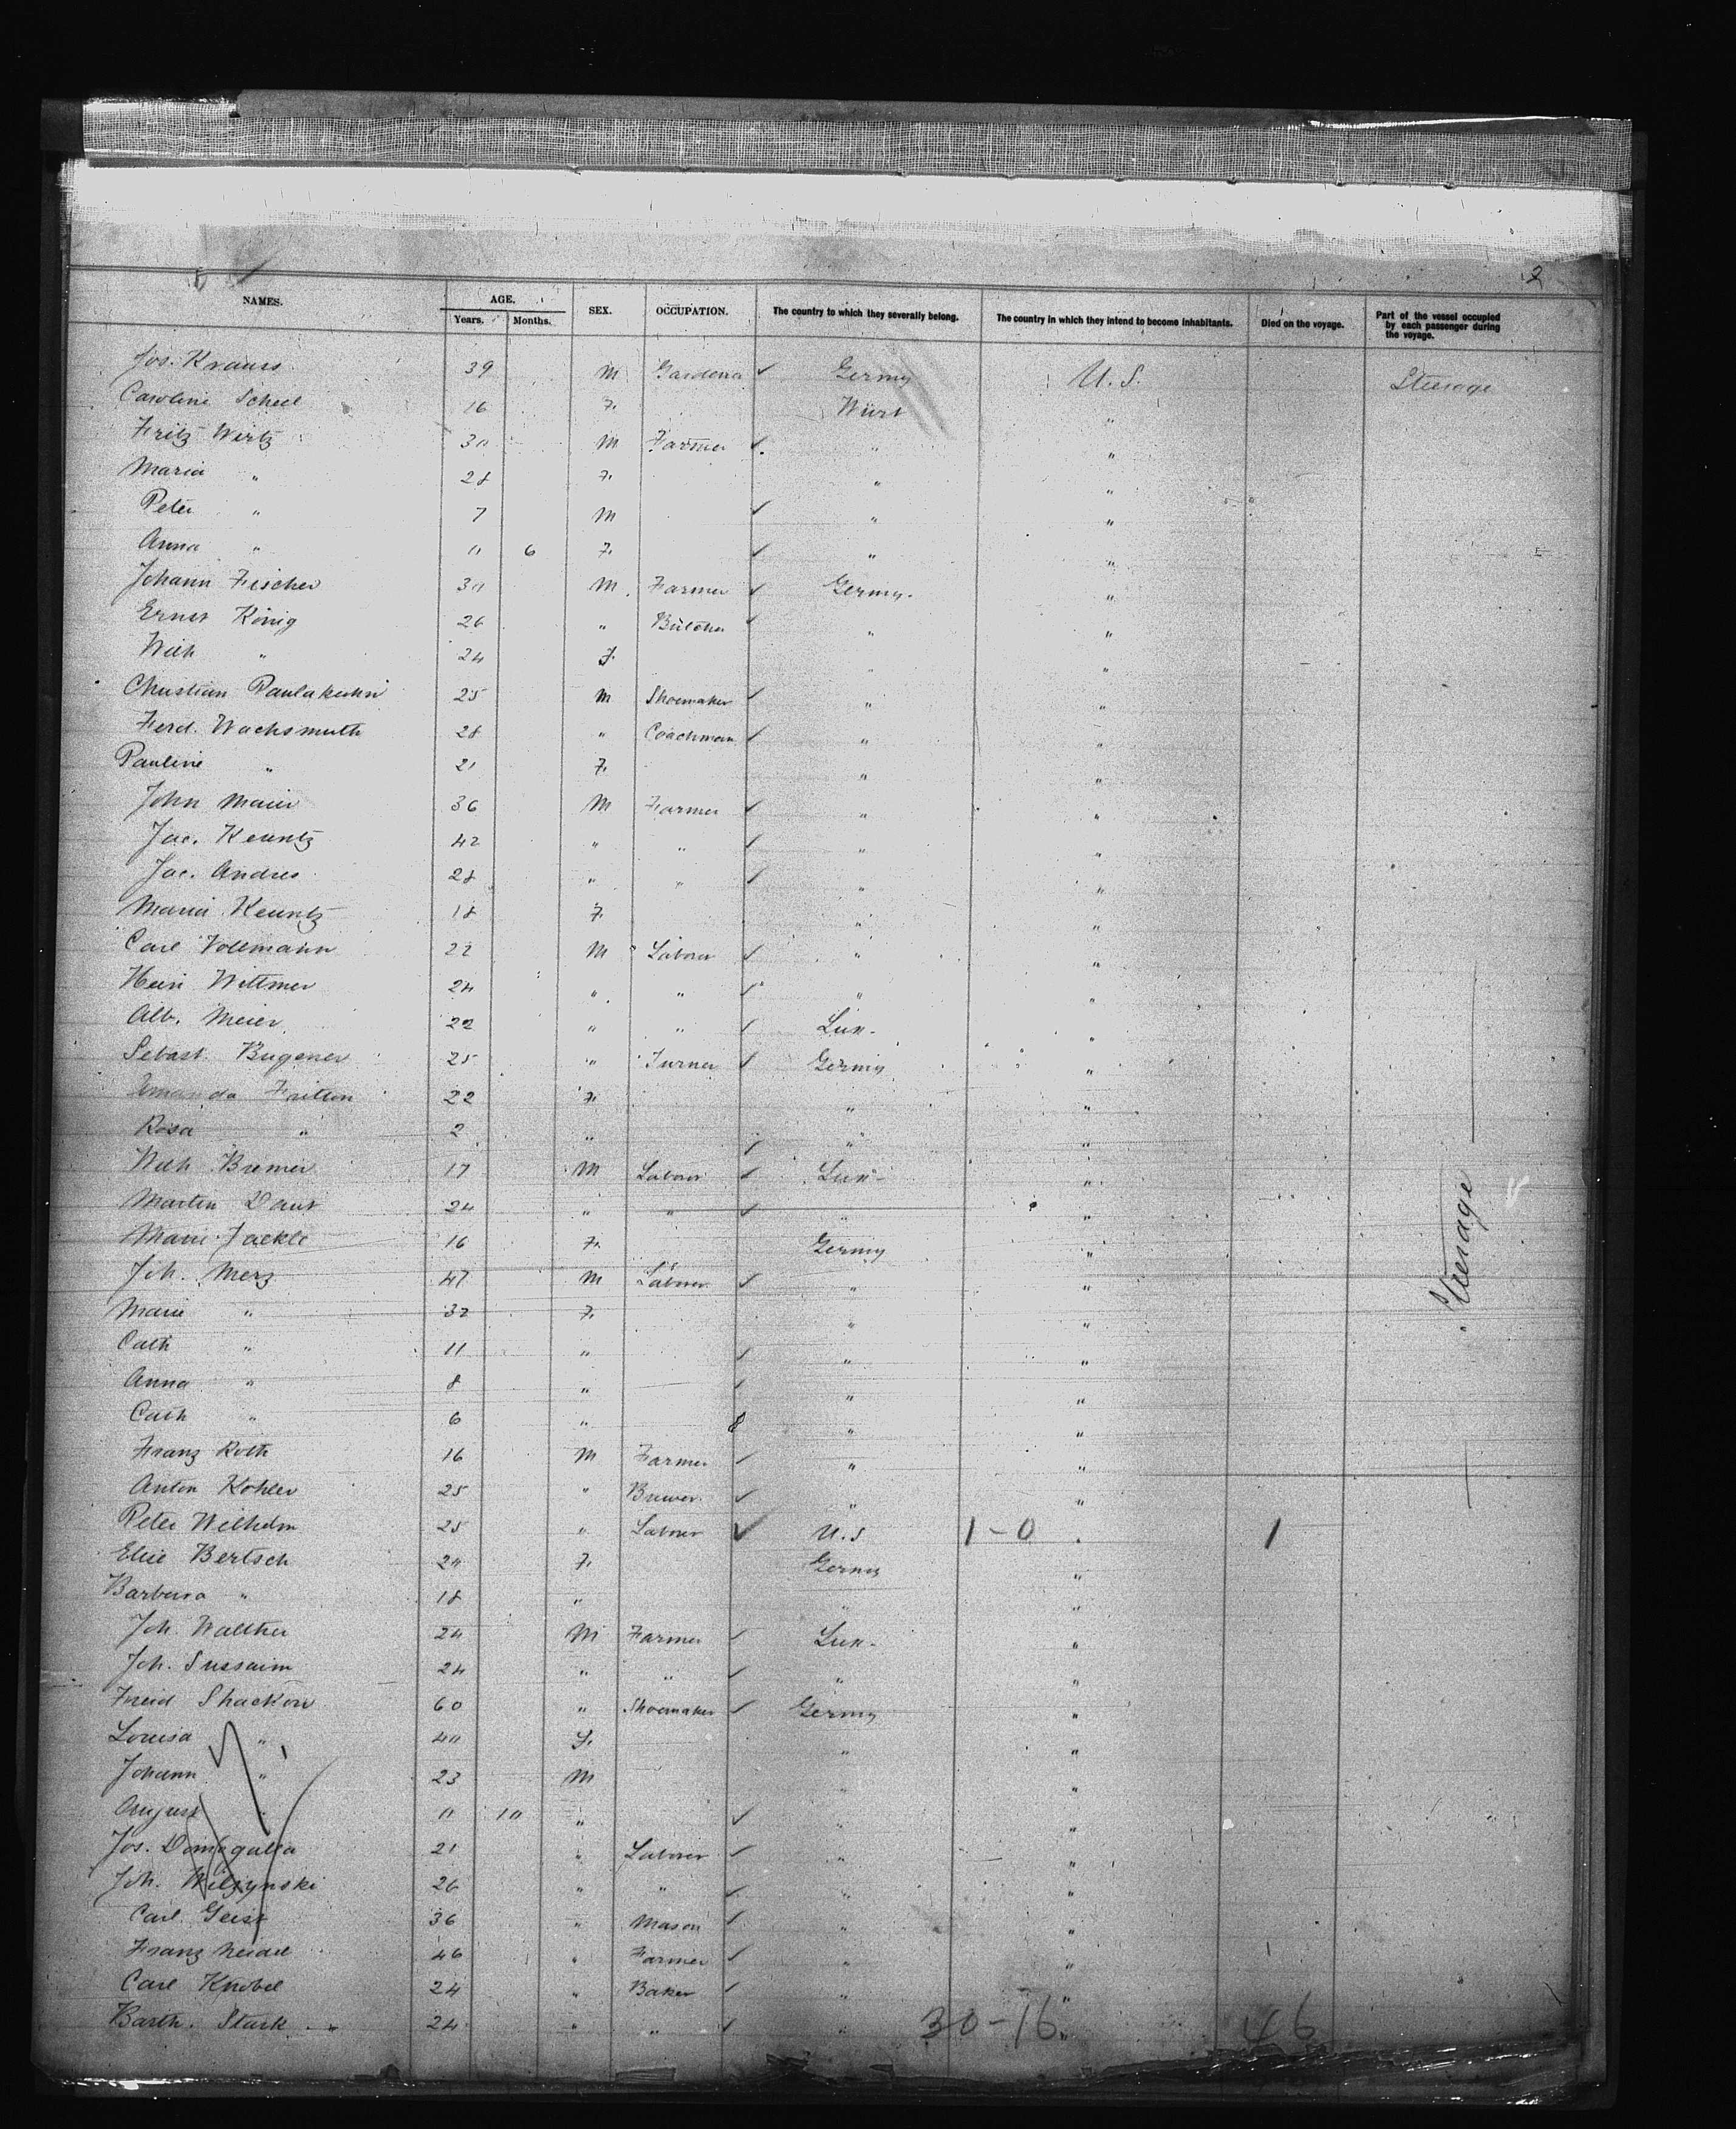 2
NAMES. AGE. SEX. OCCUPATION. The country to which they severally belong. The country in which they intend to become inhabitants. Died on the voyage. Part of the vessel occupied by each passenger during the voyage.
Years. Months.
Jos. Krauss 39 M Gardener ✓ Germy U.S. Steerage
Caroline Scheel 16 F. Würt "
Fritz Wirtz 30 M Farmer ✓ " "
Maria " 28 F. " "
Peter " 7 M ✓ " "
Anna " 0 6 F. ✓ " "
Johann Fischer 30 M Farmer ✓ Germy. "
Ernst König 26 " Butcher ✓ " "
Wilh " 24 F. " "
Christian 25 M Shoemaker ✓ " "
Ferd. Wachsmuth 28 " Coachman ✓ " "
Pauline " 21 F. " "
John Maier 36 M Farmer ✓ " "
Jac. Keuntz 42 " " ✓ " "
Jac. Andres 28 " " ✓ " "
Maria Keuntz 18 F. " "
Carl Vollmann 22 M Laborer ✓ " "
Hein Wittmer 24 " " ✓ " "
Alb. Meier 22 " " ✓ Lux- "
Sebast. Bugener 25 " Turner ✓ Germy "
22 F. " "
Rosa " 2 " ✓ " "
Wilh Bremer 17 M Laborer ✓ Lux- "
Martin Daut 24 " " ✓ " "
Marie Jackle 16 F. Germy "
Joh. Merz 47 M Laborer ✓ " "
Marie " 32 F. " "
Cath " 11 " ✓ " "
Anna " 8 " ✓ " "
Cath " 6 " 8 " "
Steerage
Franz Roth 16 M Farmer ✓ " "
Anton Kohler 25 " Brewer ✓ " "
Peter Wilhelm 25 " Laborer ✓ U.S 1-0 " 1
Elise Bertsch 20 F. Germy "
Barbara " 18 " " "
Joh. Walther 24 M Farmer ✓ Lux- "
Joh. Sussaim 24 " " ✓ " "
Shackow 60 " Shoemaker ✓ Germy "
Louisa " 40 F. " "
Johann " 23 M " "
August " 0 10 " ✓ " "
Jos. Domogalla 21 " Laborer ✓ " "
Joh. Wilzynski 26 " " ✓ " "
Carl Geist 36 " Mason ✓ " "
Franz 46 " Farmer ✓ " "
Carl Knobel 24 " Baker ✓ " "
Barth. Stark 24 " " ✓ " 30-16 " 46